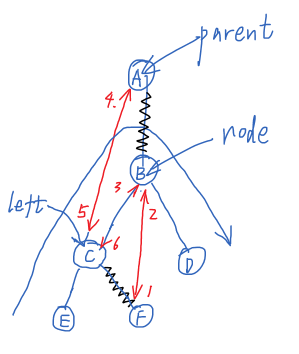 parent
A
4.
node
B
3
2
left
5
6
C
D
1
E
F